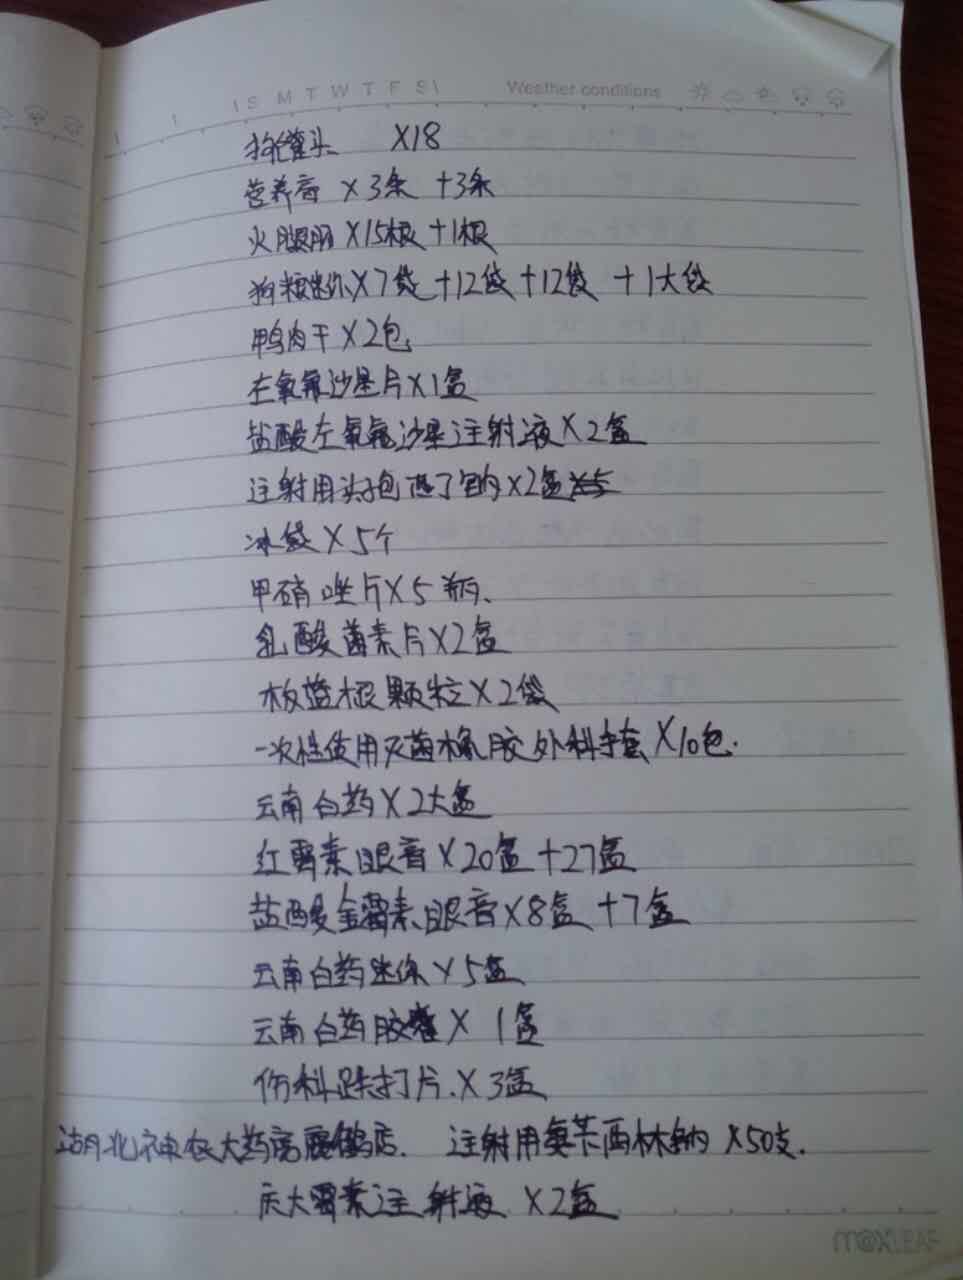 S M T W T F S Weather conditions
狗罐头 X18
营养膏 X3条 +3条
火腿肠 X15根 +1根
狗粮迷你X7袋 +12袋 +12袋 +1大袋
鸭肉干X2包
左氧氟沙星片X1盒
盐酸左氧氟沙星注射液X2盒
注射用头孢 钠X2盒
冰袋X5个
甲硝唑片X5瓶、
乳酸菌素片X2盒
板蓝根颗粒X2袋
一次性使用灭菌橡胶外科手套X10包.
云南白药X2大盒
红霉素眼膏X20盒+27盒
盐酸金霉素眼膏X8盒 +7盒
云南白药迷你X5盒
云南白药胶囊X 1盒
伤科跌打片.X3盒
湖北神农大药房 鹤店. 注射用氨苄西林钠 X50支.
庆大霉素注射液 X2盒
m@xLEAF